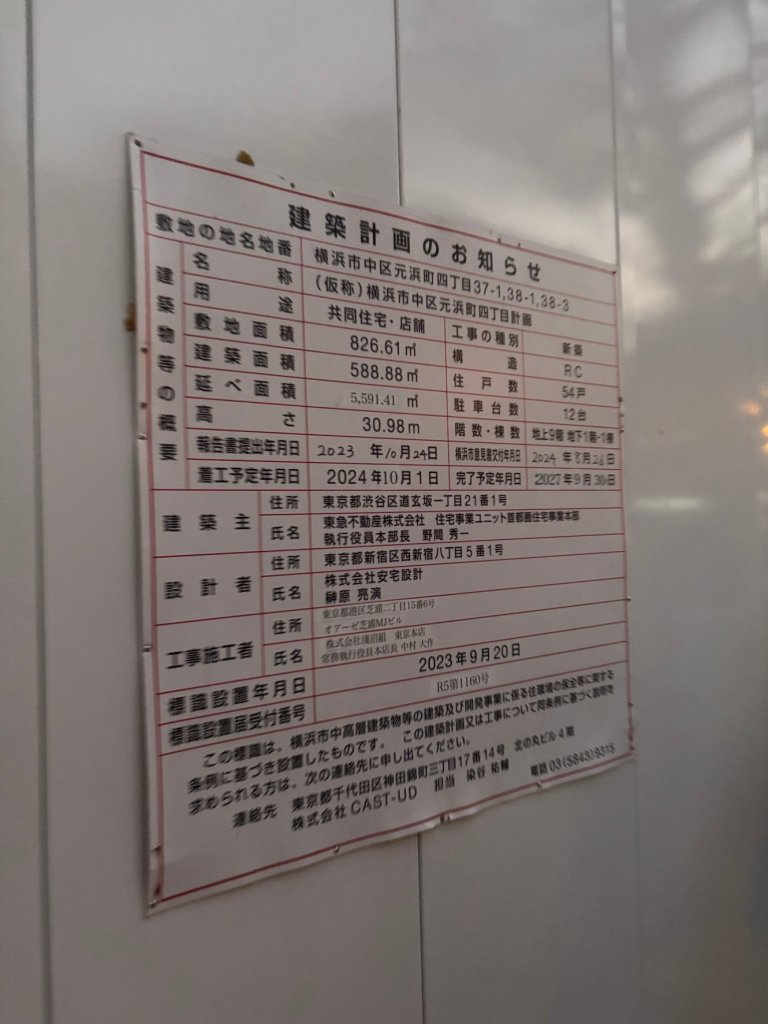 建築計画のお知らせ
敷地の地名地番 横浜市中区元浜町四丁目37-1,38-1,38-3
建築物等の概要
名称 (仮称)横浜市中区元浜町四丁目計画
用途 共同住宅・店舗 工事の種別 新築
敷地面積 826.61㎡ 構造 RC
建築面積 588.88㎡ 住戸数 54戸
延べ面積 5,591.41 ㎡ 駐車台数 12台
高さ 30.98m 階数・棟数 地上9階 地下1階・1棟
報告書提出年月日 2023 年10月24日 横浜市意見書交付年月日 2024 年 月26日
着工予定年月日 2024年10月1日 完了予定年月日 2027年9月30日
建築主 住所 東京都渋谷区道玄坂一丁目21番1号
氏名 東急不動産株式会社 住宅事業ユニット首都圏住宅事業本部
執行役員本部長 野間 秀一
設計者 住所 東京都新宿区西新宿八丁目5番1号
氏名 株式会社安宅設計
榊原 亮演
工事施工者 住所 東京都港区芝浦二丁目15番6号
オアーゼ芝浦MJビル
氏名 株式会社淺沼組 東京本店
常務執行役員本店長 中村 大作
標識設置年月日 2023年9月20日
標識設置届受付番号 R5第1160号
この標識は、横浜市中高層建築物等の建築及び開発事業に係る住環境の保全等に関する
条例に基づき設置したものです。 この建築計画又は工事について同条例に基づく説明を
求められる方は、次の連絡先に申し出てください。
連絡先 東京都千代田区神田錦町三丁目17番14号 北の丸ビル4階
株式会社 CAST-UD 担当 染谷 祐輔 電話 03(5843)9315